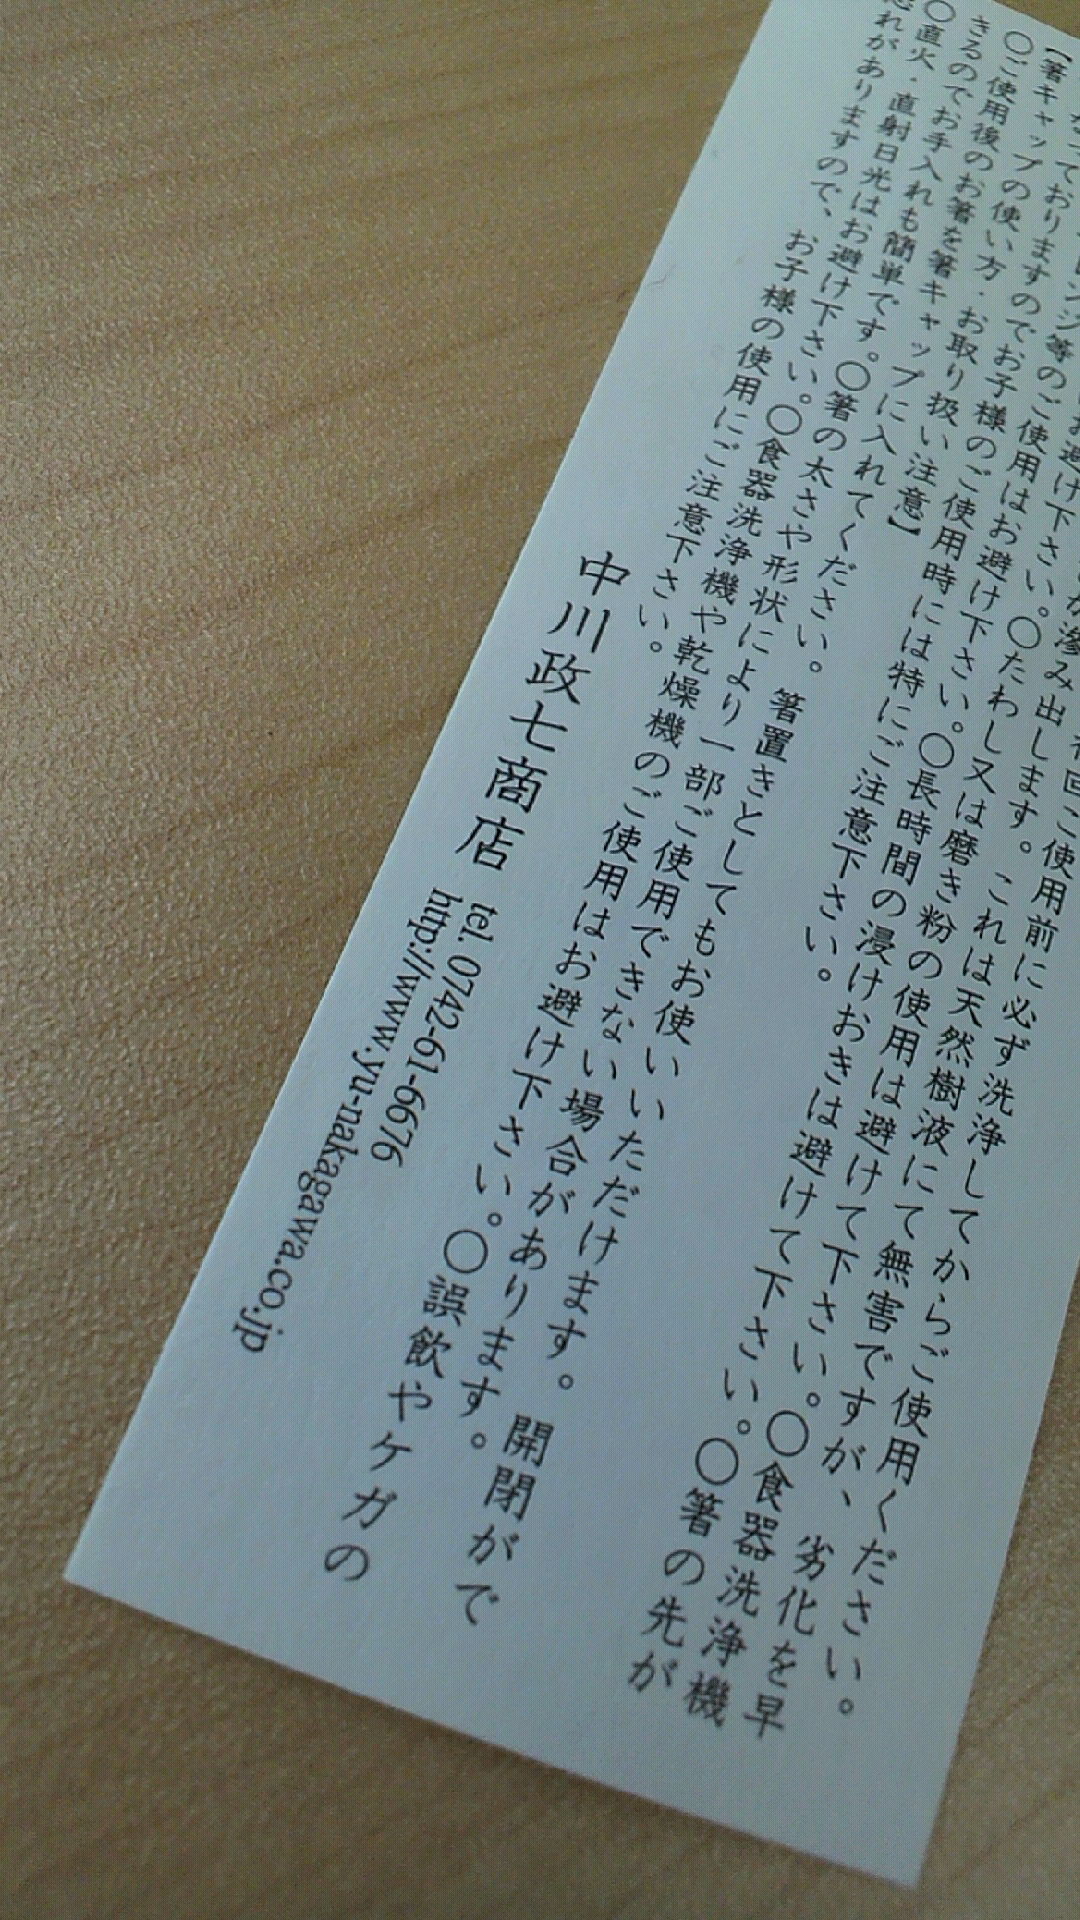 初回ご使用前に必ず洗浄してからご使用ください。
が滲み出します。これは天然樹液にて無害ですが、劣化を早
お避け下さい。○たわし又は磨き粉の使用は避けて下さい。○食器洗浄機
レンジ等のご使用はお避け下さい。○長時間の浸けおきは避けて下さい。○箸の先が
なっておりますのでお子様のご使用時には特にご注意下さい。
【箸キャップの使い方・お取り扱い注意】
○ご使用後のお箸を箸キャップに入れてください。 箸置きとしてもお使いいただけます。 開閉がで
きるのでお手入れも簡単です。○箸の太さや形状により一部ご使用できない場合があります。
○直火・直射日光はお避け下さい。○食器洗浄機や乾燥機のご使用はお避け下さい。○誤飲やケガの
恐れがありますので、お子様の使用にご注意下さい。
中川政七商店
tel. 0742-61-6676
http://www.yu-nakagawa.co.jp